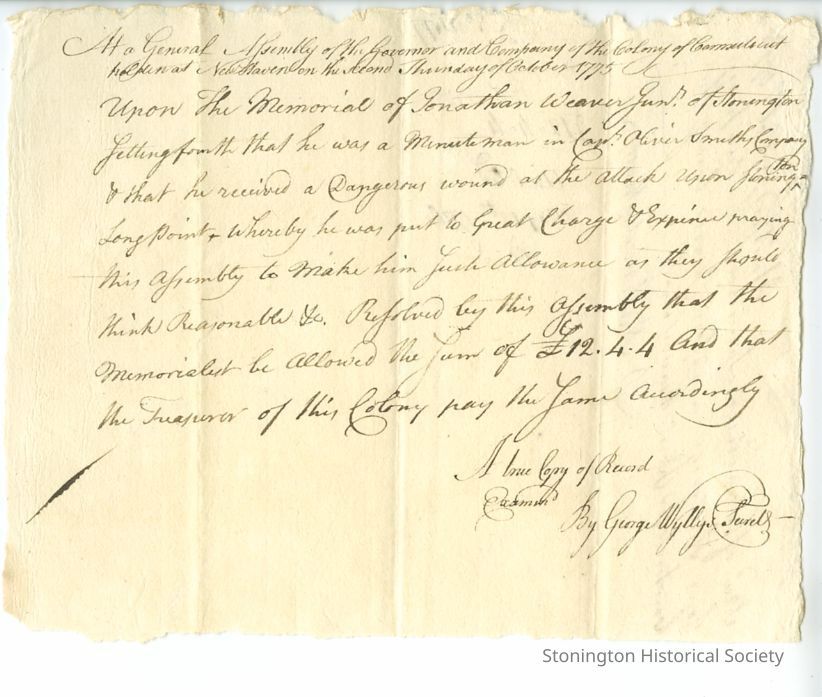 At a General Assembly of the Governor and Company of the Colony of Connecticut
holden at New Haven on the second Thursday of October 1775
Upon the Memorial of Jonathan Weaver Junr. of Stonington
Setting fourth that he was a Minuteman in Capt. Oliver Smiths Company
& that he received a Dangerous wound at the attack upon Stoning=ton
Long Point, Whereby he was put to Great Charge & Expence praying
this Assembly to Make him Such Allowance as they should
think Reasonable &c. Resolved by this Assembly that the
Memorialist be Allowed the Sum of £12.4.4 And that
the Treasurer of this Colony pay the Same Accordingly
A true Copy of Record
Examind
By George Wyllys Secrety
Stonington Historical Society